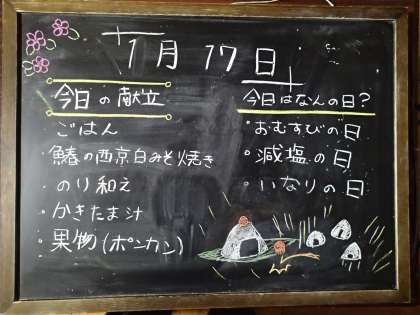 1月17日
今日の献立
・ごはん
・鰆の西京白みそ焼き
・のり和え
・かきたま汁
・果物(ポンカン)
今日はなんの日?
・おむすびの日
・減塩の日
・いなりの日